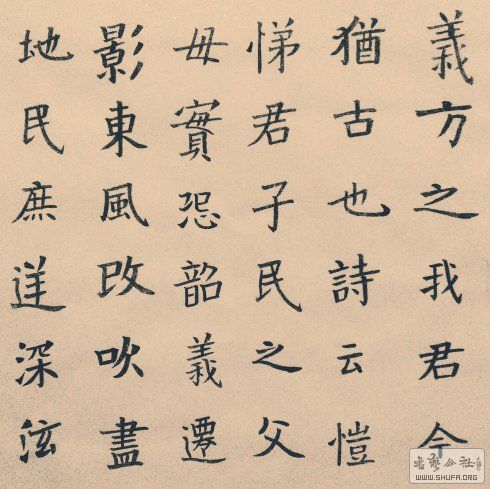 義方之我君今
猶古也詩云愷
悌君子民之父
毋實恐韶義遷
影東風改吹盡
地民庶逆深泫
WWW.SHUFA.ORG